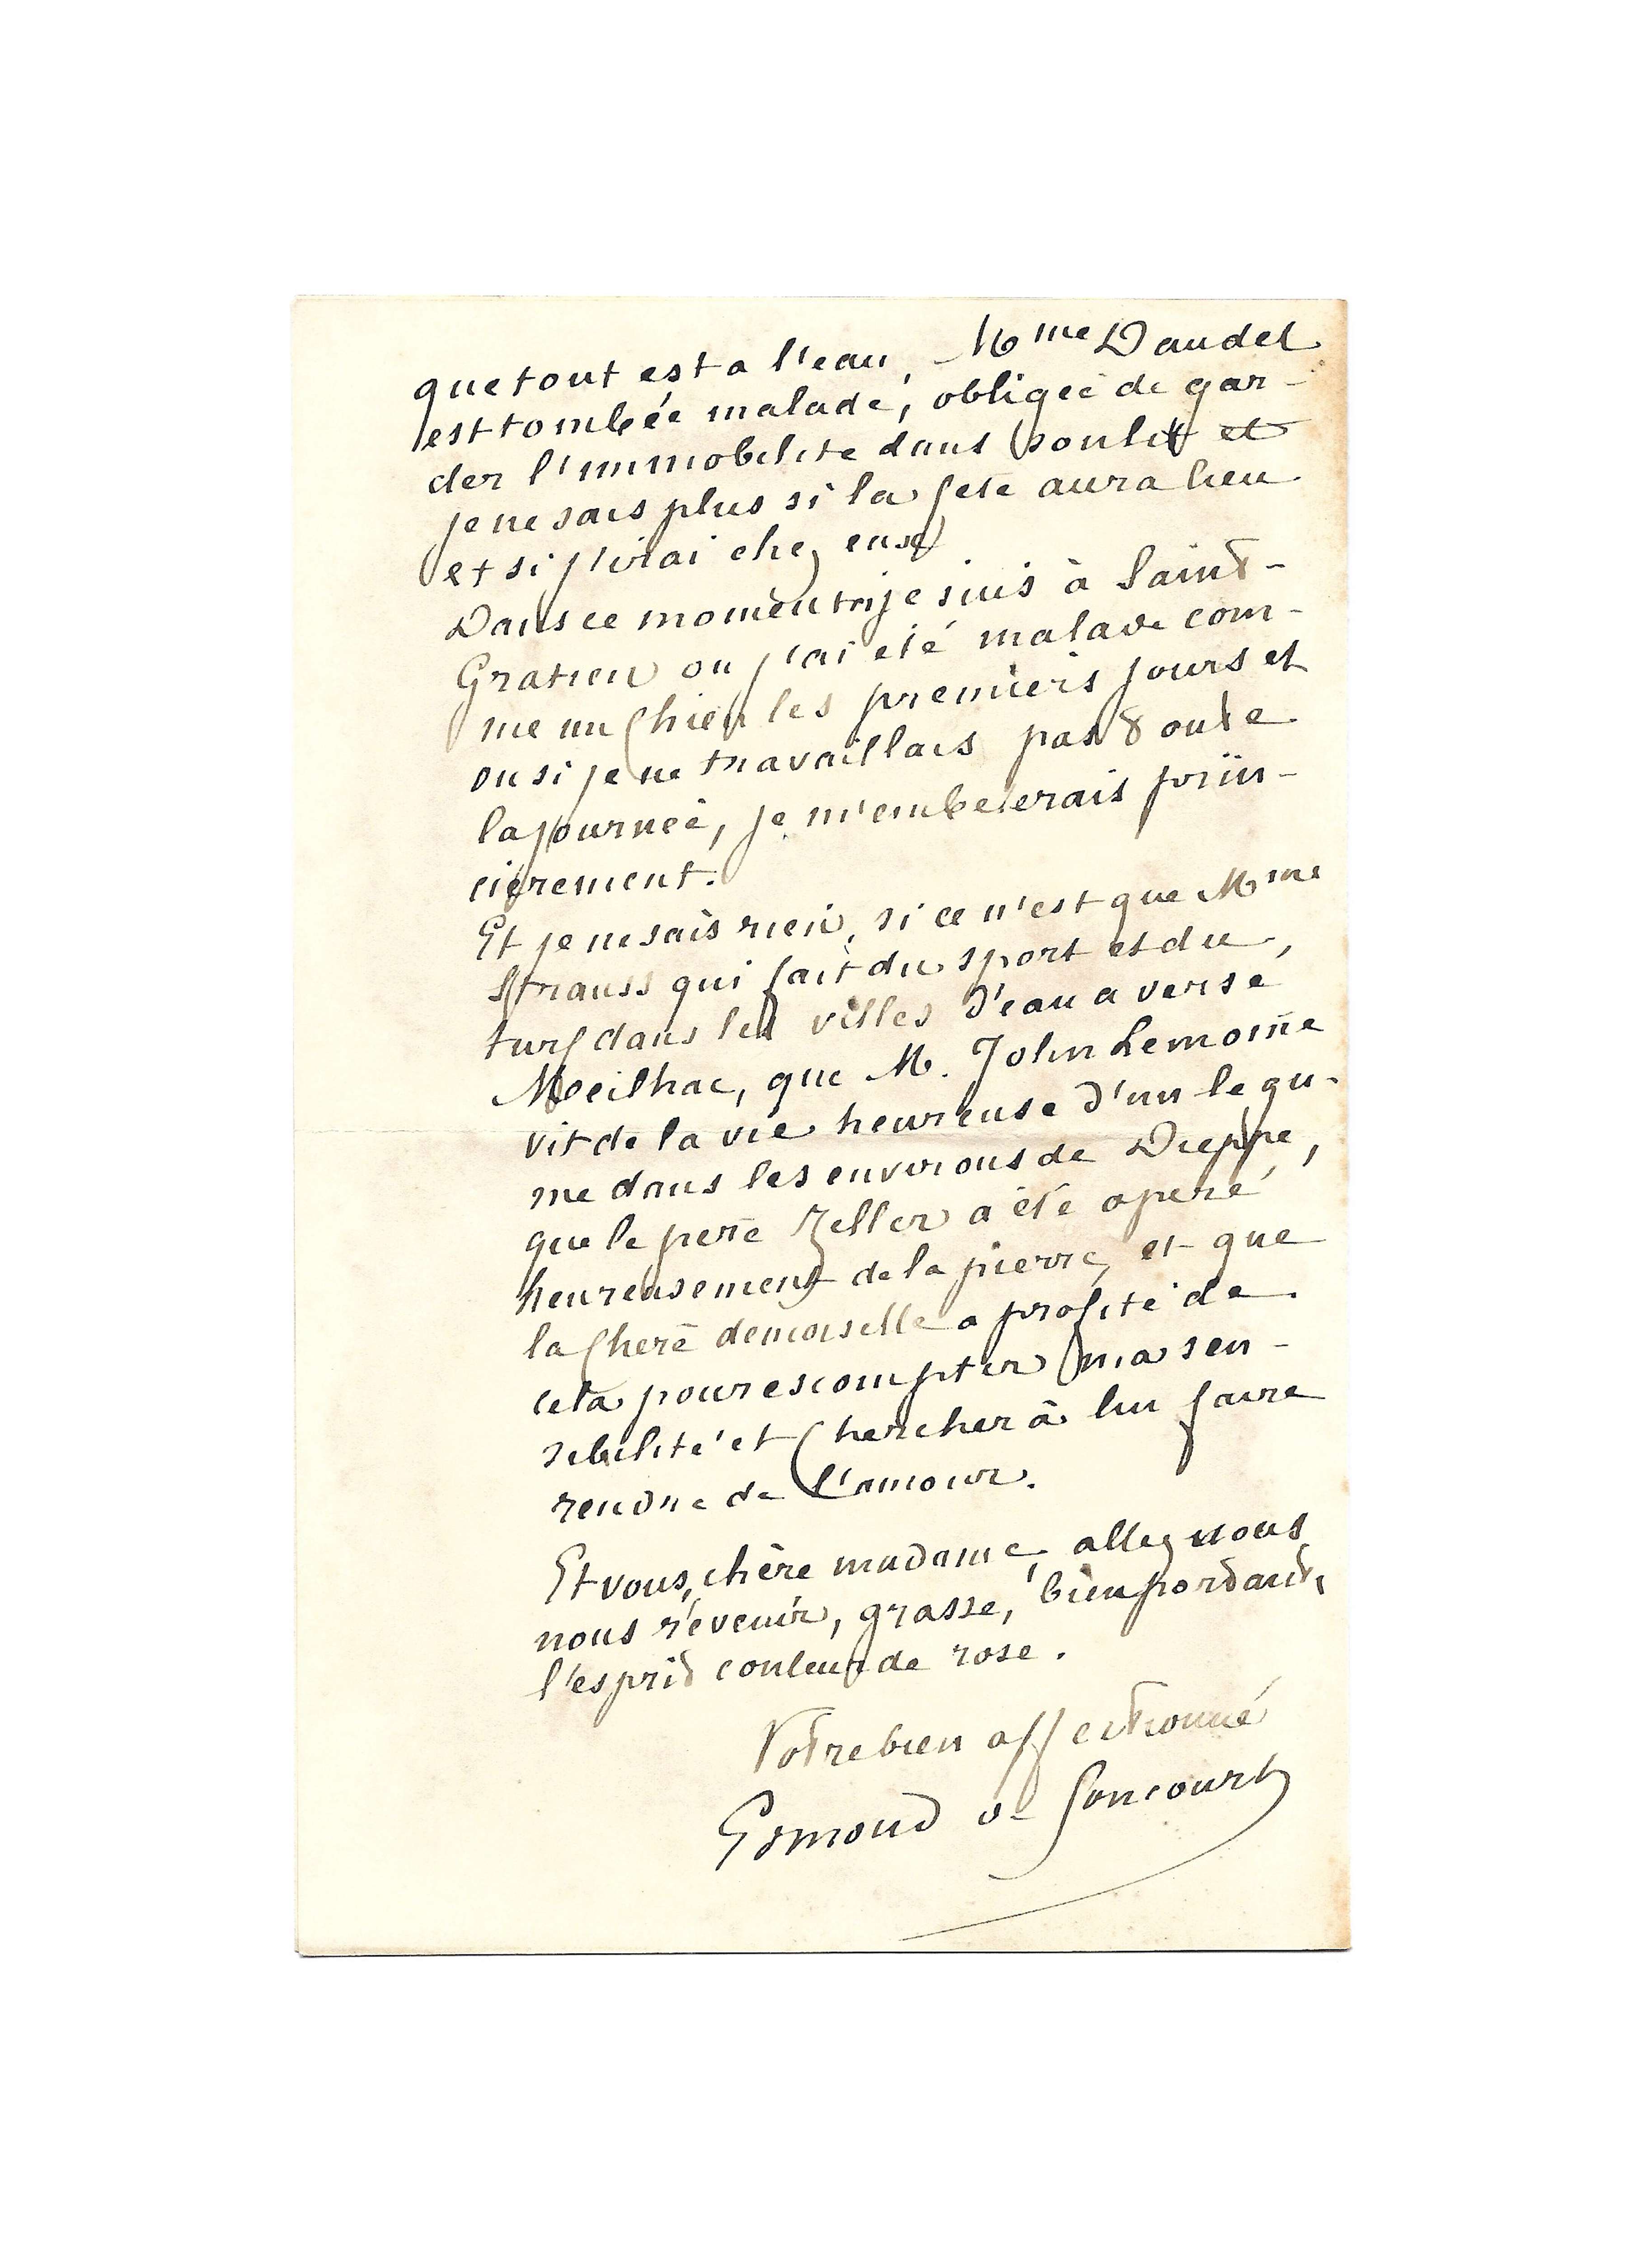 que tout est a l'eau, Mme Daudet
est tombée malade, obligée de gar-
der l'immobilité dans son lit et
je ne sais plus si la fete aura lieu
et si j'irai chez eux
Dans ce moment je suis à Saint-
Gratien ou j'ai été malade com-
me un chien les premiers jours et
ou si je ne travaillais pas toute
la journée, je m'embeterais prin-
cièrement.
Et je ne sais rien, si ce n'est que Mme
Strauss qui fait du sport et du
turf dans les villes d'eau a versé
Meilhac, que M. John Lemoine
vit de la vie heureuse d'un légu-
me dans les environs de Dieppe,
que le père Zeller a été operé
heureusement de la pierre, et que
la chere demoiselle a profité de
cela pour escompter ma sen-
sibilité et chercher à lui faire
rendre de l'amour.
Et vous, chère madame, allez vous
nous revenir, grasse, bien portante,
l'esprit couleur de rose.
Votre bien affectionné
Edmond de Goncourt